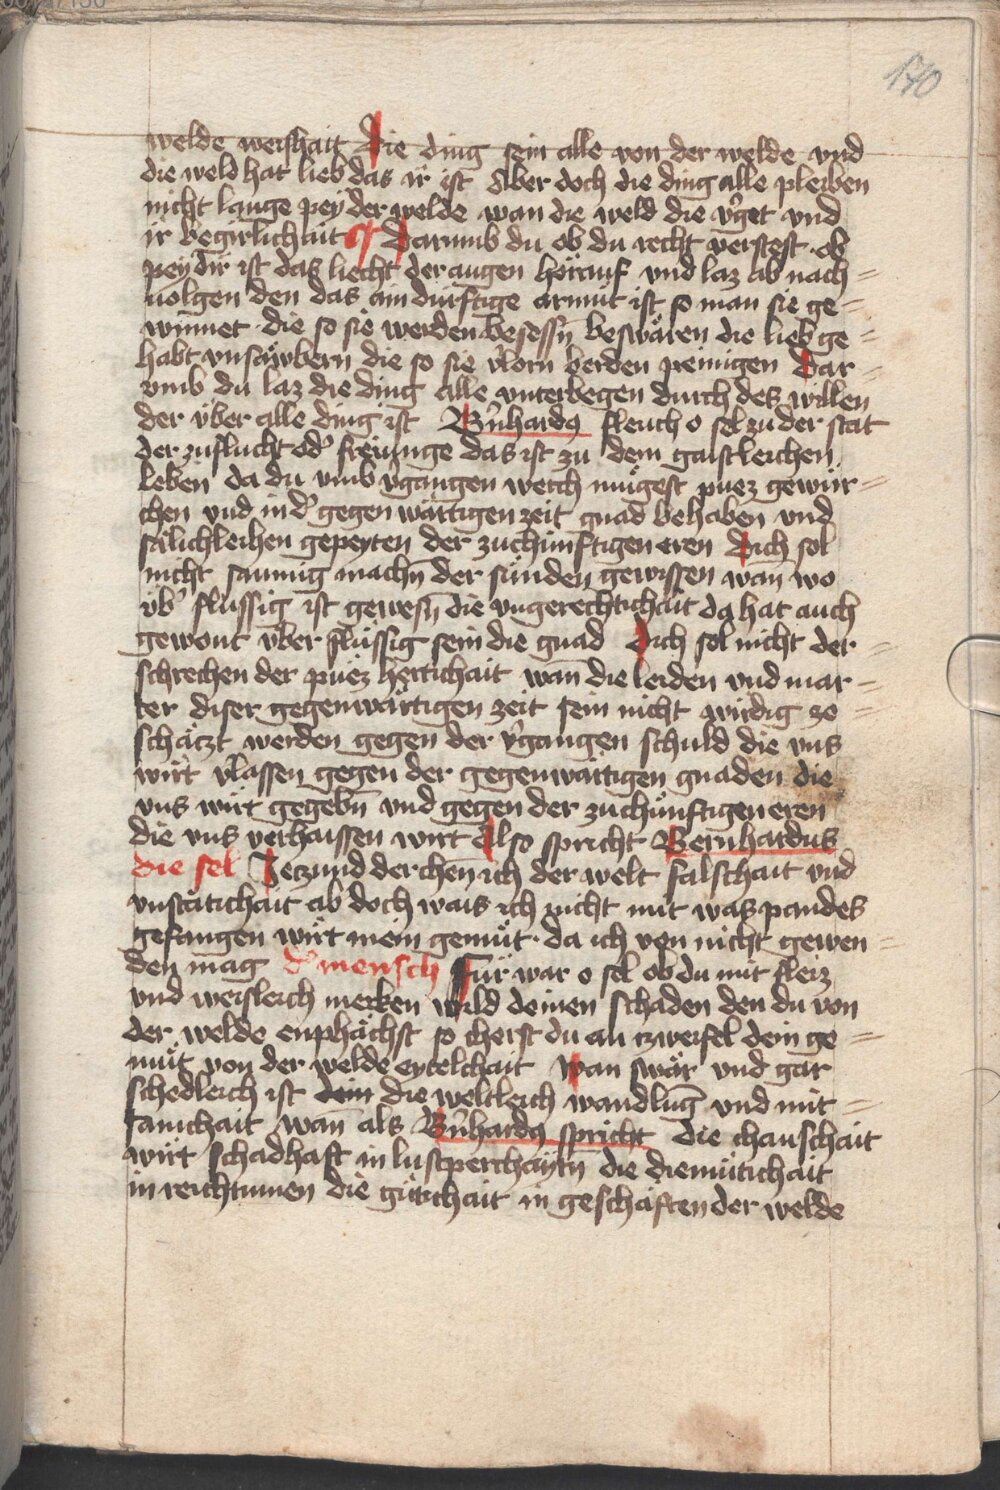 170
welde weishait Die ding sein alle von der welde vnd
die weld hat lieb das ir ist Aber doch die ding alle pleiben
nicht lange pey der welde wan die weld die v̉get vnd
ir begirlichait ¶ Darumb du ob du recht verstest ob
pey dir ist das liecht der augen hör auf vnd laz ab nach=
uolgen den das ain dürftige armüt ist so man sie ge=
winnet die so sie werden besessn̄ beswären die lieb ge=
habt vnsäwbern die so sie v̉lorn berden peinigen Dar=
vmb du laz die ding alle vnterbegen durch des willen
der über alle ding ist Bn̉hardꝰ fleuch o sel zu der stat
der zuflucht od̉ freiunge das ist zu dem gaistleichen
leben da du vmb v̉gangen werch mügest puez gewür=
chen vnd in d̉ gegenwärtigen zeit gnad behaben vnd
sälichleihen gepeyten der zuchünftigen eren Dich sol
nicht saumig machn̄ der sünden gewissen wan wo
üb̉ flüssig ist gewesn̄ die vngerechtichait da hat auch
gewont über flüssig sein die gnad Dich sol nicht der=
schrechen der puez hertichait wan̄ die leiden vnd mar=
ter diser gegenwärtigen zeit sein nicht wirdig ze=
schäczt werden gegen der v̉gangen schuld die vns
wirt v̉lassen gegen der gegenwärtigen gnaden die
vns wirt gegebn̄ vnd gegen der zuchünftigen eren
die vns verhaissen wirt Also spricht Bernhardus
die sel Ieczund derchen̄ ich der welt falschait vnd
vnstätichait ab doch wais ich nicht mit was pandes
gefangen wirt mein gemüt da ich von nicht gewen=
den mag d̉ mensch Für war o sel ob du mit fleiz
vnd weisleich merken wild deinen schaden den du von
der welde enphächst so cherst du an czweifel dein ge=
müt von der welde eytelchait Wan swär vnd gar
schedleich ist dein die weltleich wandlūg vnd mit=
samchait wan̄ als Bn̉hardꝰ spricht die chauschait
wirt schadhaft in lustperchaytn̄ die diemütichait
in reichtumen die gütichait in geschäften der welde